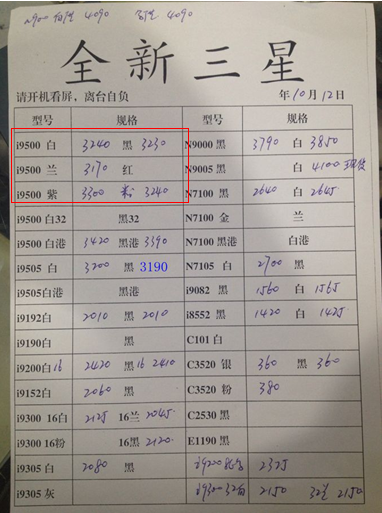 n900 白 4090 4090
全新三星
请开机看屏，离台自负 年10月12日
型号 规格 型号 规格
i9500 白 3240 黑 3230 N9000 黑 3790 白 3850
i9500 兰 3170 红 N9005 黑 白 4100
i9500 紫 3300 粉 3240 N7100 黑 2640 白 2645
i9500 白32 黑32 N7100 金 兰
i9500 白港 3420 黑港 3390 N7100 黑港 白港
i9505 白 3200 黑 3190 N7105 白 2700 黑
i9505白港 黑港 i9082 黑 1560 白 1565
i9192白 2010 黑 2010 i8552 黑 1420 白 1425
i9190白 黑 C101 白
i9200白16 2420 黑16 2410 C3520 银 360 黑 360
i9152白 2060 黑 C3520 粉 380
i9300 16白 2125 16兰 2045 C2530 黑
i9300 16粉 16黑 2120 E1190 黑
i9305 白 2080 黑 i9220 2375
i9305 灰 i9300 32白 2150 32 2150